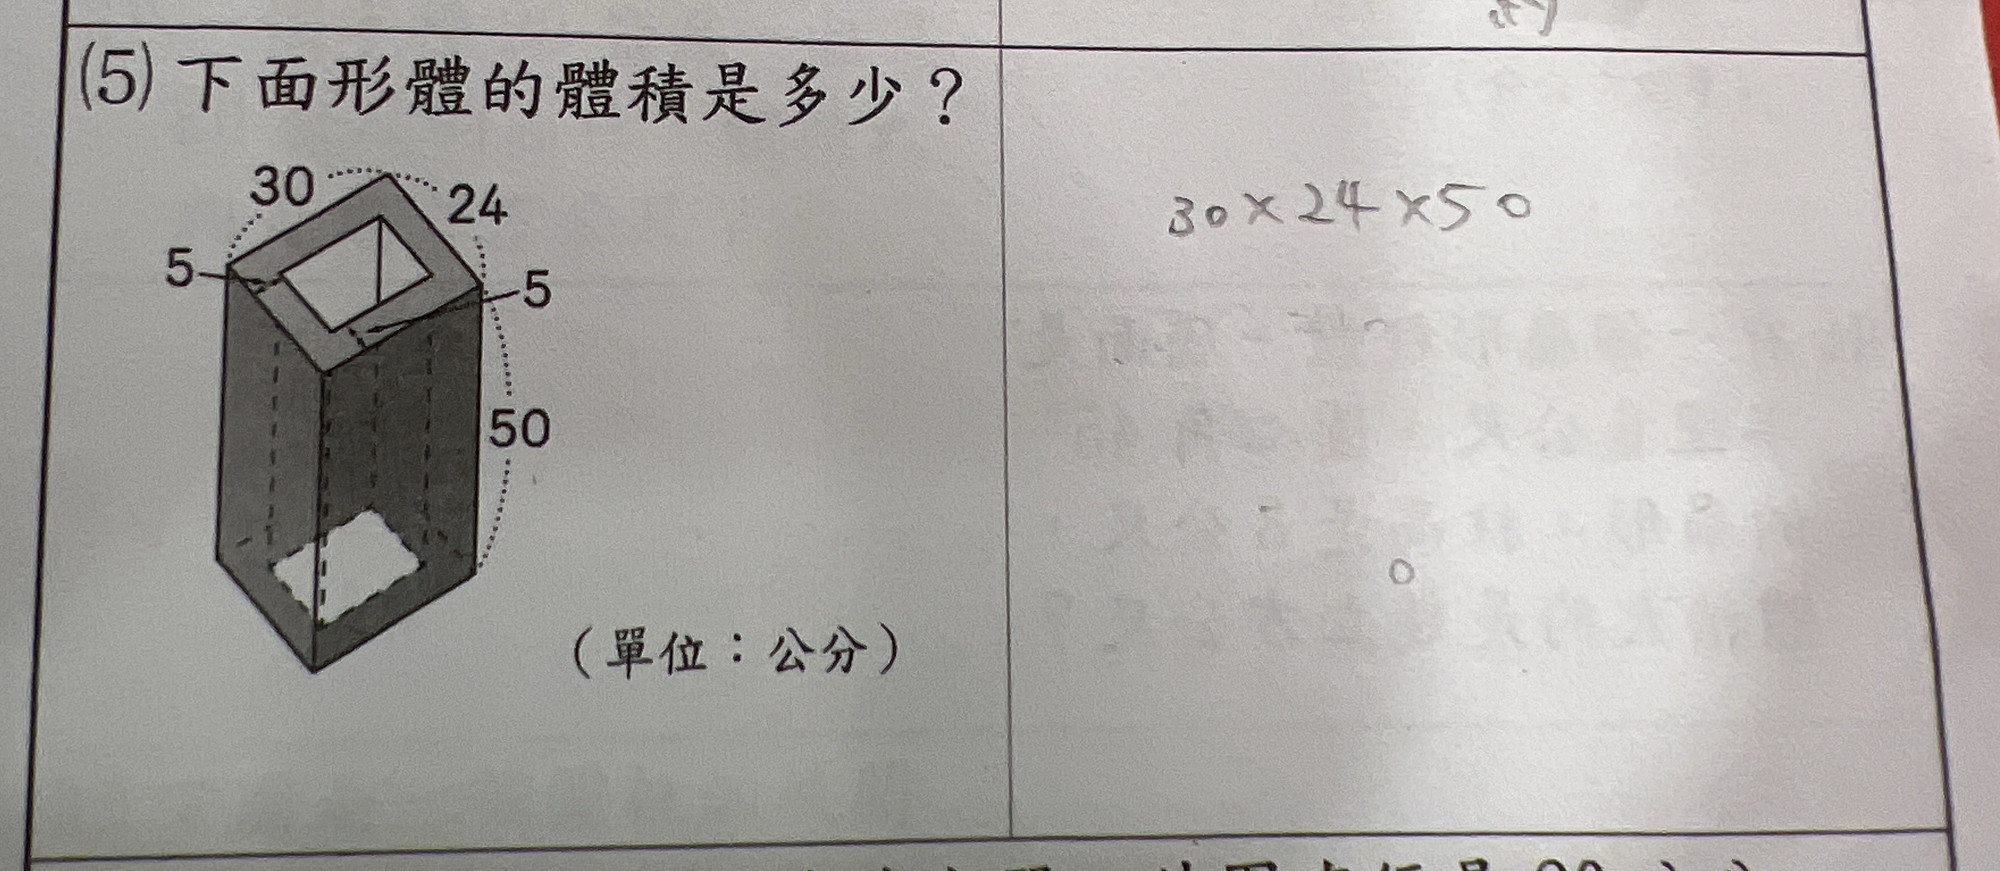 (5) 下面形體的體積是多少？
30
24
5
5
50
（單位：公分）
30×24×50